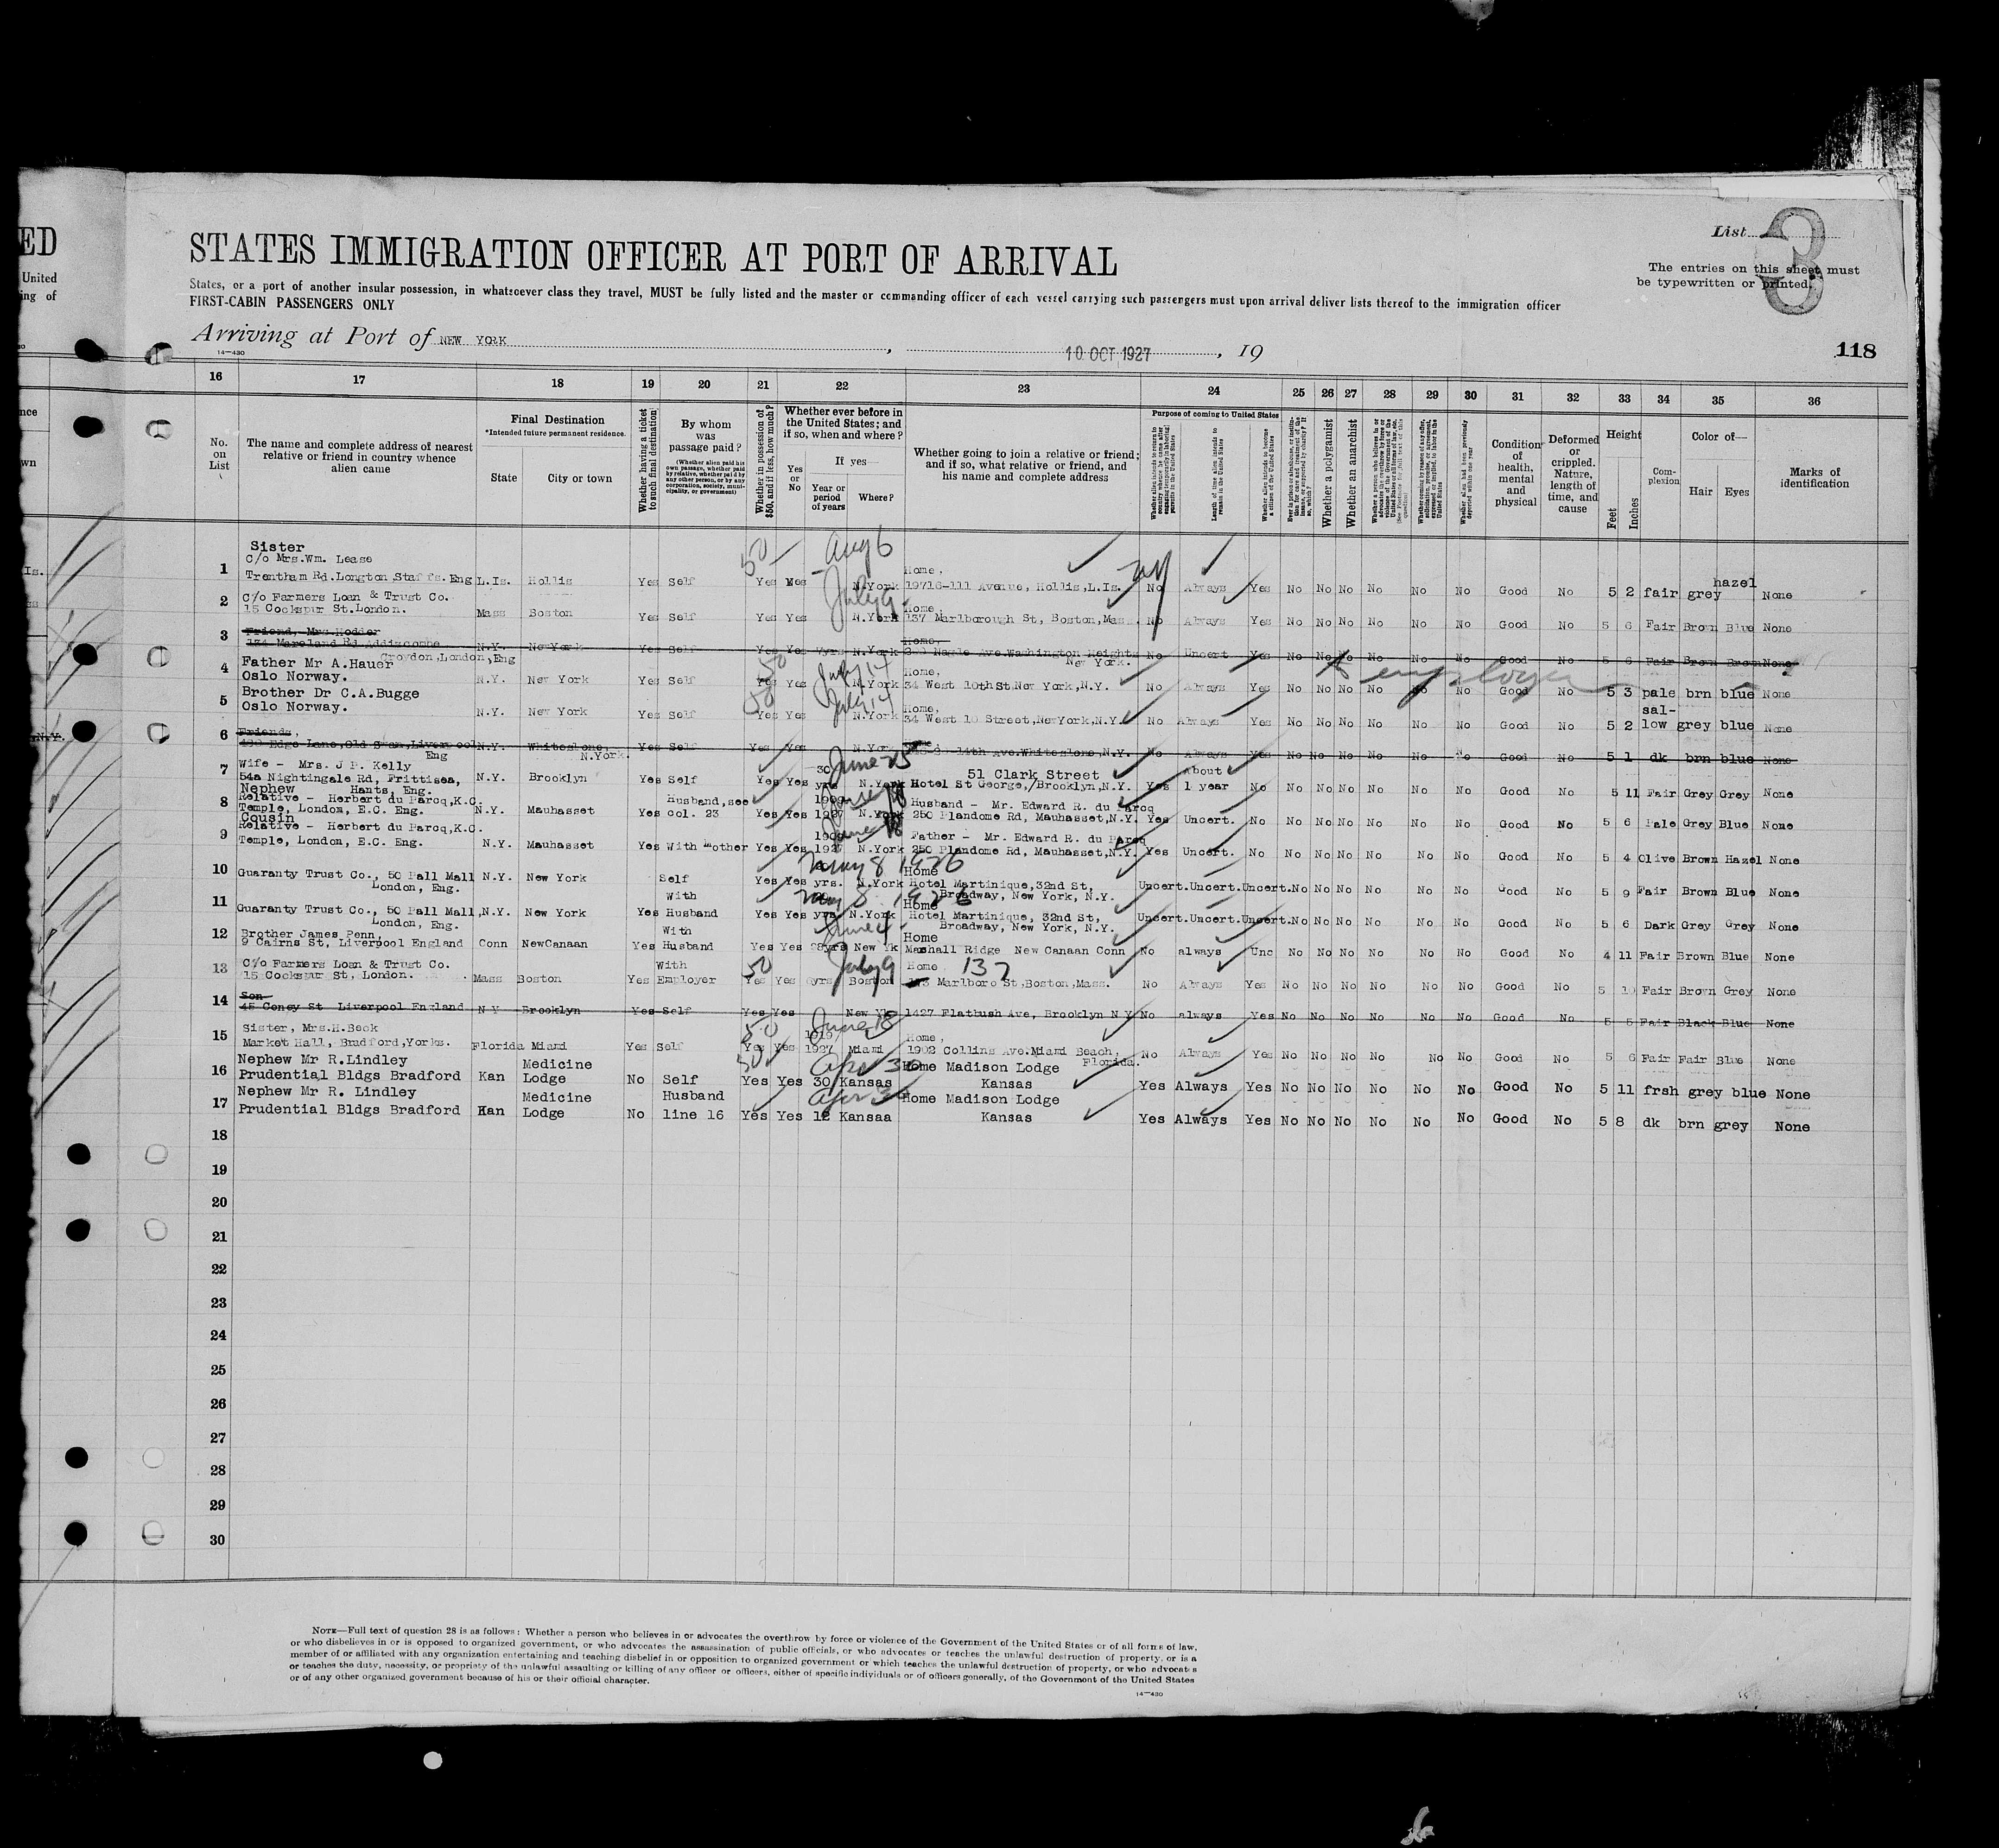 ED
United
ing of
STATES IMMIGRATION OFFICER AT PORT OF ARRIVAL
List
3
The entries on this sheet must
be typewritten or printed.
States, or a port of another insular possession, in whatsoever class they travel, MUST be fully listed and the master or commanding officer of each vessel carrying such passengers must upon arrival deliver lists thereof to the immigration officer
FIRST-CABIN PASSENGERS ONLY
Arriving at Port of NEW YORK , 10 OCT 1927 , 19
14—430
118
16 17 18 19 20 21 22 23 24 25 26 27 28 29 30 31 32 33 34 35 36
No. on List
The name and complete address of nearest relative or friend in country whence alien came
Final Destination
*Intended future permanent residence.
State City or town
Whether having a ticket to such final destination
By whom was passage paid?
(Whether alien paid his own passage, whether paid by any other person, or by any corporation, society, municipality, or government)
Whether in possession of $50, and if less, how much?
Whether ever before in the United States; and if so, when and where?
Yes or No
If yes—
Year or period of years
Where?
Whether going to join a relative or friend; and if so, what relative or friend, and his name and complete address
Purpose of coming to United States
Length of time alien intends to remain in the United States
Whether alien intends to become a citizen of the United States
Whether a polygamist
Whether an anarchist
Condition of health, mental and physical
Deformed or crippled. Nature, length of time, and cause
Height
Feet Inches
Complexion
Color of—
Hair Eyes
Marks of identification
Sister 50 Aug 6
C/o Mrs.Wm. Lease Home,
1 Trentham Rd.Longton Staffs.Eng L.Is. Hollis Yes Self Yes Yes N.York 19716-111 Avenue, Hollis,L.Is. No Always Yes No No No No No No Good No 5 2 fair grey hazel None
C/o Farmers Loan & Trust Co. July 9 Home,
2 15 Cockspur St.London. Mass Boston Yes Self Yes Yes N.York 137 Marlborough St, Boston,Mass. No Always Yes No No No No No No Good No 5 6 Fair Brown Blue None
Friend, Mrs.Hodder Home,
3 Addiscombe N.Y. NewYork Yes Self Yes Yes yrs N.York Nagle Ave.Washington Heights No Uncert Yes No No No No No No Good No 5 6 Fair Brown Brown None
Croydon,London,Eng New York.
Father Mr A.Hauer 50 July 14 Home, employer
4 Oslo Norway. N.Y. New York Yes Self Yes Yes N.York 34 West 10thSt New York,N.Y. No Always Yes No No No No No No Good No 5 3 pale brn blue None
Brother Dr C.A.Bugge 50 July 14 Home, sal-
5 Oslo Norway. N.Y. New York Yes Self Yes Yes N.York 34 West 10 Street,NewYork,N.Y. No Always Yes No No No No No No Good No 5 2 low grey blue None
Friends,
6 Edge Lane,Old Swan,Liverpool N.Y. Whitestone, Yes Self Yes Yes N.York 14th Ave.Whitestone,N.Y. No Always Yes No No No No No No Good No 5 1 dk brn blue None
Eng N.York.
Wife - Mrs. J P. Kelly 30 June 25 51 Clark Street About
7 54a Nightingale Rd, Frittisea, N.Y. Brooklyn Yes Self Yes Yes yrs N.York Hotel St George,/Brooklyn,N.Y. Yes 1 year No No No No No No No Good No 5 11 Fair Grey Grey None
Nephew Hants, Eng.
Relative - Herbert du Parcq,K.C. Husband,see 1909 June 18 Husband - Mr. Edward R. du Parcq
8 Temple, London, E.C. Eng. N.Y. Mauhasset Yes col. 23 Yes Yes 1927 N.York 250 Plandome Rd, Mauhasset,N.Y. Yes Uncert. No No No No No No No Good No 5 6 Pale Grey Blue None
Cousin
Relative - Herbert du Parcq,K.C. 1909 June 18 Father - Mr. Edward R. du Parcq
9 Temple, London, E.C. Eng. N.Y. Mauhasset Yes With mother Yes Yes 1927 N.York 250 Plandome Rd, Mauhasset,N.Y. Yes Uncert. No No No No No No No Good No 5 4 Olive Brown Hazel None
May 8 1926 Home
10 Guaranty Trust Co., 50 Pall Mall N.Y. New York Self Yes Yes yrs. N.York Hotel Martinique,32nd St, Uncert. Uncert. Uncert. No No No No No No Good No 5 9 Fair Brown Blue None
London, Eng. With May 8 1926 Broadway, New York, N.Y.
Home
11 Guaranty Trust Co., 50 Pall Mall, N.Y. New York Yes Husband Yes Yes yrs N.York Hotel Martinique, 32nd St, Uncert. Uncert. Uncert. No No No No No No Good No 5 6 Dark Grey Grey None
London, Eng. Broadway, New York, N.Y.
Brother James Penn, With June 4 Home
12 9 Cairns St, Liverpool England Conn NewCanaan Yes Husband Yes Yes 28yrs New Yk Marshall Ridge New Canaan Conn No always Unc No No No No No No Good No 4 11 Fair Brown Blue None
C/o Farmers Loan & Trust Co. With 50 July 9 Home 137
13 15 Cockspur St, London. Mass Boston Yes Employer Yes Yes yrs Boston Marlboro St,Boston,Mass. No Always Yes No No No No No No Good No 5 10 Fair Brown Grey None
Son
14 45 Coney St Liverpool England N Y Brooklyn Yes Self Yes Yes New Yk 1427 Flatbush Ave, Brooklyn N Y No always Yes No No No No No No Good No 5 5 Fair Black Blue None
Sister, Mrs.H.Beck 50 June 18 1919/ Home,
15 Market Hall, Bradford,Yorks. Florida Miami Yes Self Yes Yes 1927 Miami 1902 Collins Ave.Miami Beach, No Always Yes No No No No No No Good No 5 6 Fair Fair Blue None
Florida.
Nephew Mr R.Lindley Medicine 50 Apr 30 Home Madison Lodge
16 Prudential Bldgs Bradford Kan Lodge No Self Yes Yes 30 Kansas Kansas Yes Always Yes No No No No No No Good No 5 11 frsh grey blue None
Nephew Mr R. Lindley Medicine Husband Apr 30 Home Madison Lodge
17 Prudential Bldgs Bradford Kan Lodge No line 16 Yes Yes 12 Kansaa Kansas Yes Always Yes No No No No No No Good No 5 8 dk brn grey None
18
19
20
21
22
23
24
25
26
27
28
29
30
NOTE—Full text of question 28 is as follows: Whether a person who believes in or advocates the overthrow by force or violence of the Government of the United States or of all forms of law,
or who disbelieves in or is opposed to organized government, or who advocates the assassination of public officials, or who advocates or teaches the unlawful destruction of property, or is a
member of or affiliated with any organization entertaining and teaching disbelief in or opposition to organized government or which teaches the unlawful destruction of property, or who advocates
or teaches the duty, necessity, or propriety of the unlawful assaulting or killing of any officer or officers, either of specific individuals or of officers generally, of the Government of the United States
or of any other organized government because of his or their official character.
14—430